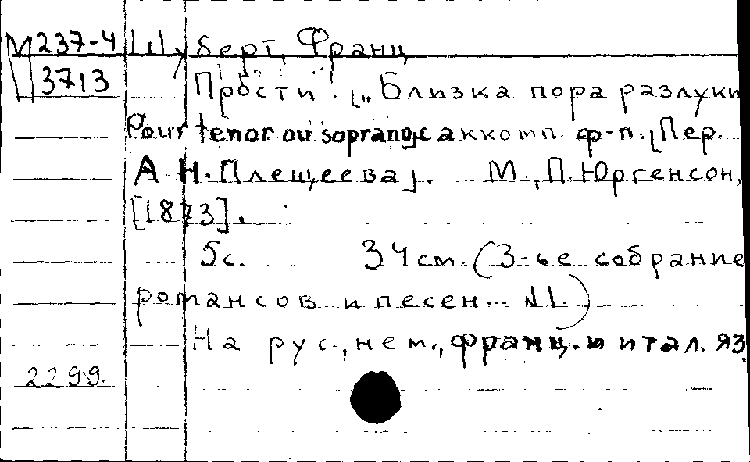 М 237-4 Шуберт, Франц
3713 Прости. [„Близка пора разлуки
Pour tenor ou soprano] с аккомп. ф-п. [Пер.
А.Н. Плещеева]. М., П. Юргенсон,
[1873].
5с. 34 см. (3-ье собрание
романсов и песен... №1)
На рус., нем., франц. и итал. яз
2299.